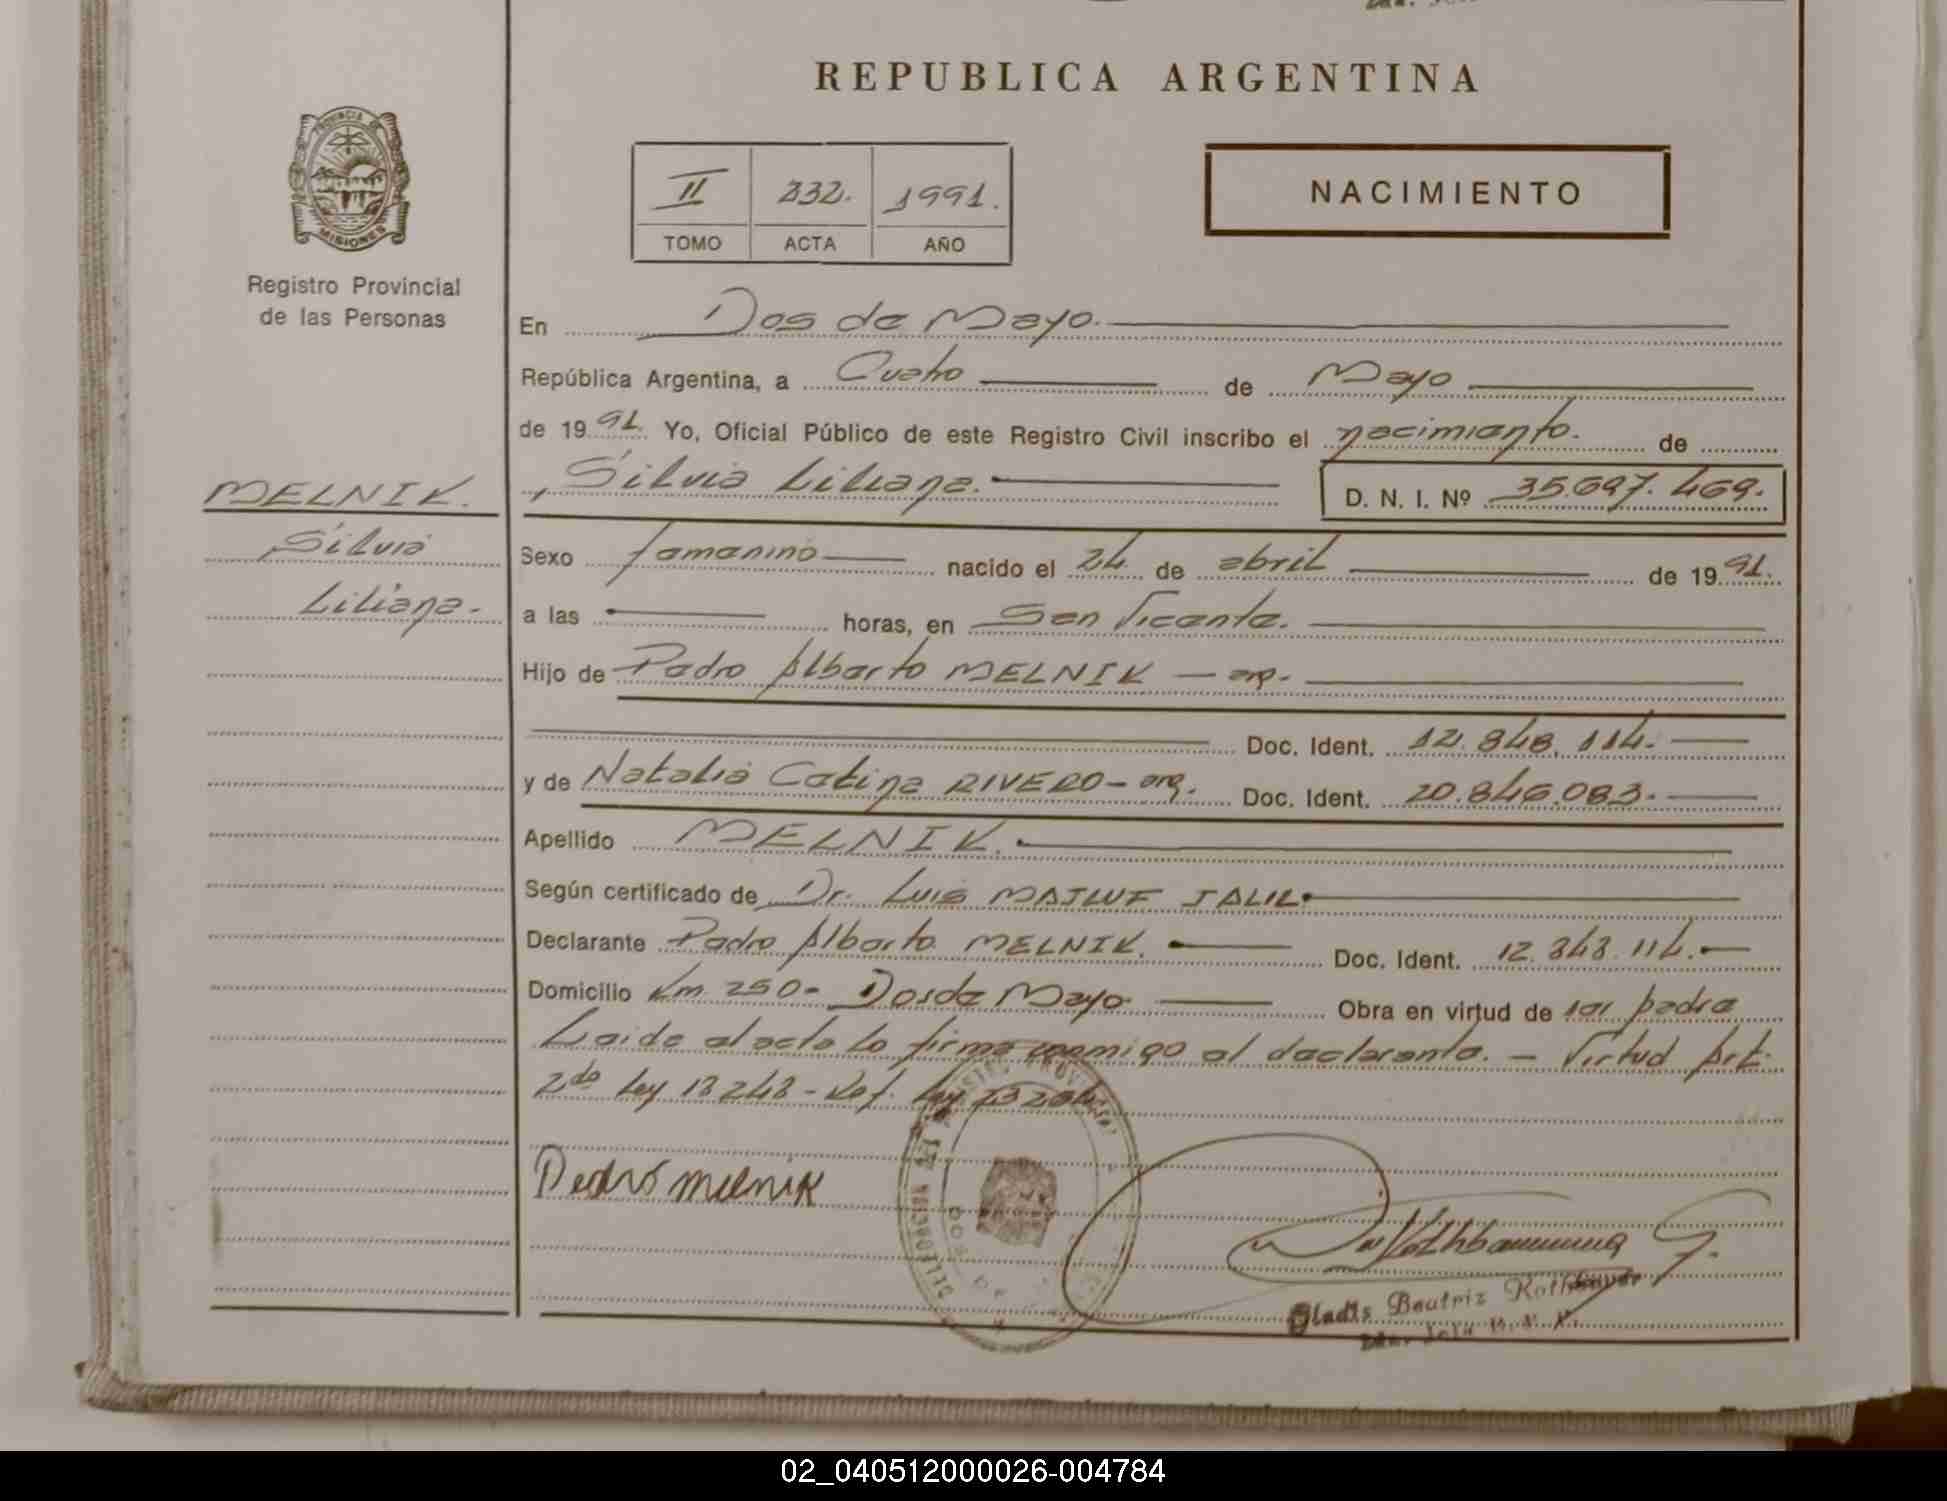 REPUBLICA ARGENTINA
PROVINCIA DE
MISIONES
Registro Provincial
de las Personas
II 232. 1991.
TOMO ACTA AÑO
NACIMIENTO
En Dos de Mayo.
República Argentina, a Cuatro de Mayo
de 1991. Yo, Oficial Público de este Registro Civil inscribo el nacimiento. de
Silvia Liliana. D. N. I. Nº 35.697.469.
MELNIK.
Silvia
Liliana.-
Sexo femenino nacido el 24 de abril de 1991.
a las horas, en San Vicente.
Hijo de Pedro Alberto MELNIK — arg.
Doc. Ident. 12.848.114.
y de Natalia Catina RIVERO - arg. Doc. Ident. 20.846.083.
Apellido MELNIK.
Según certificado de Dr. Luis MAJLUF JALIL
Declarante Pedro Alberto MELNIK. Doc. Ident. 12.848.114.
Domicilio Km. 250- Dos de Mayo. Obra en virtud de ser padre
Leida el acta la firma conmigo el declarante. — Virtud Art.
2do Ley 13248 - Ley 23264
Pedro Melnik
Gladis Beatriz
02_040512000026-004784